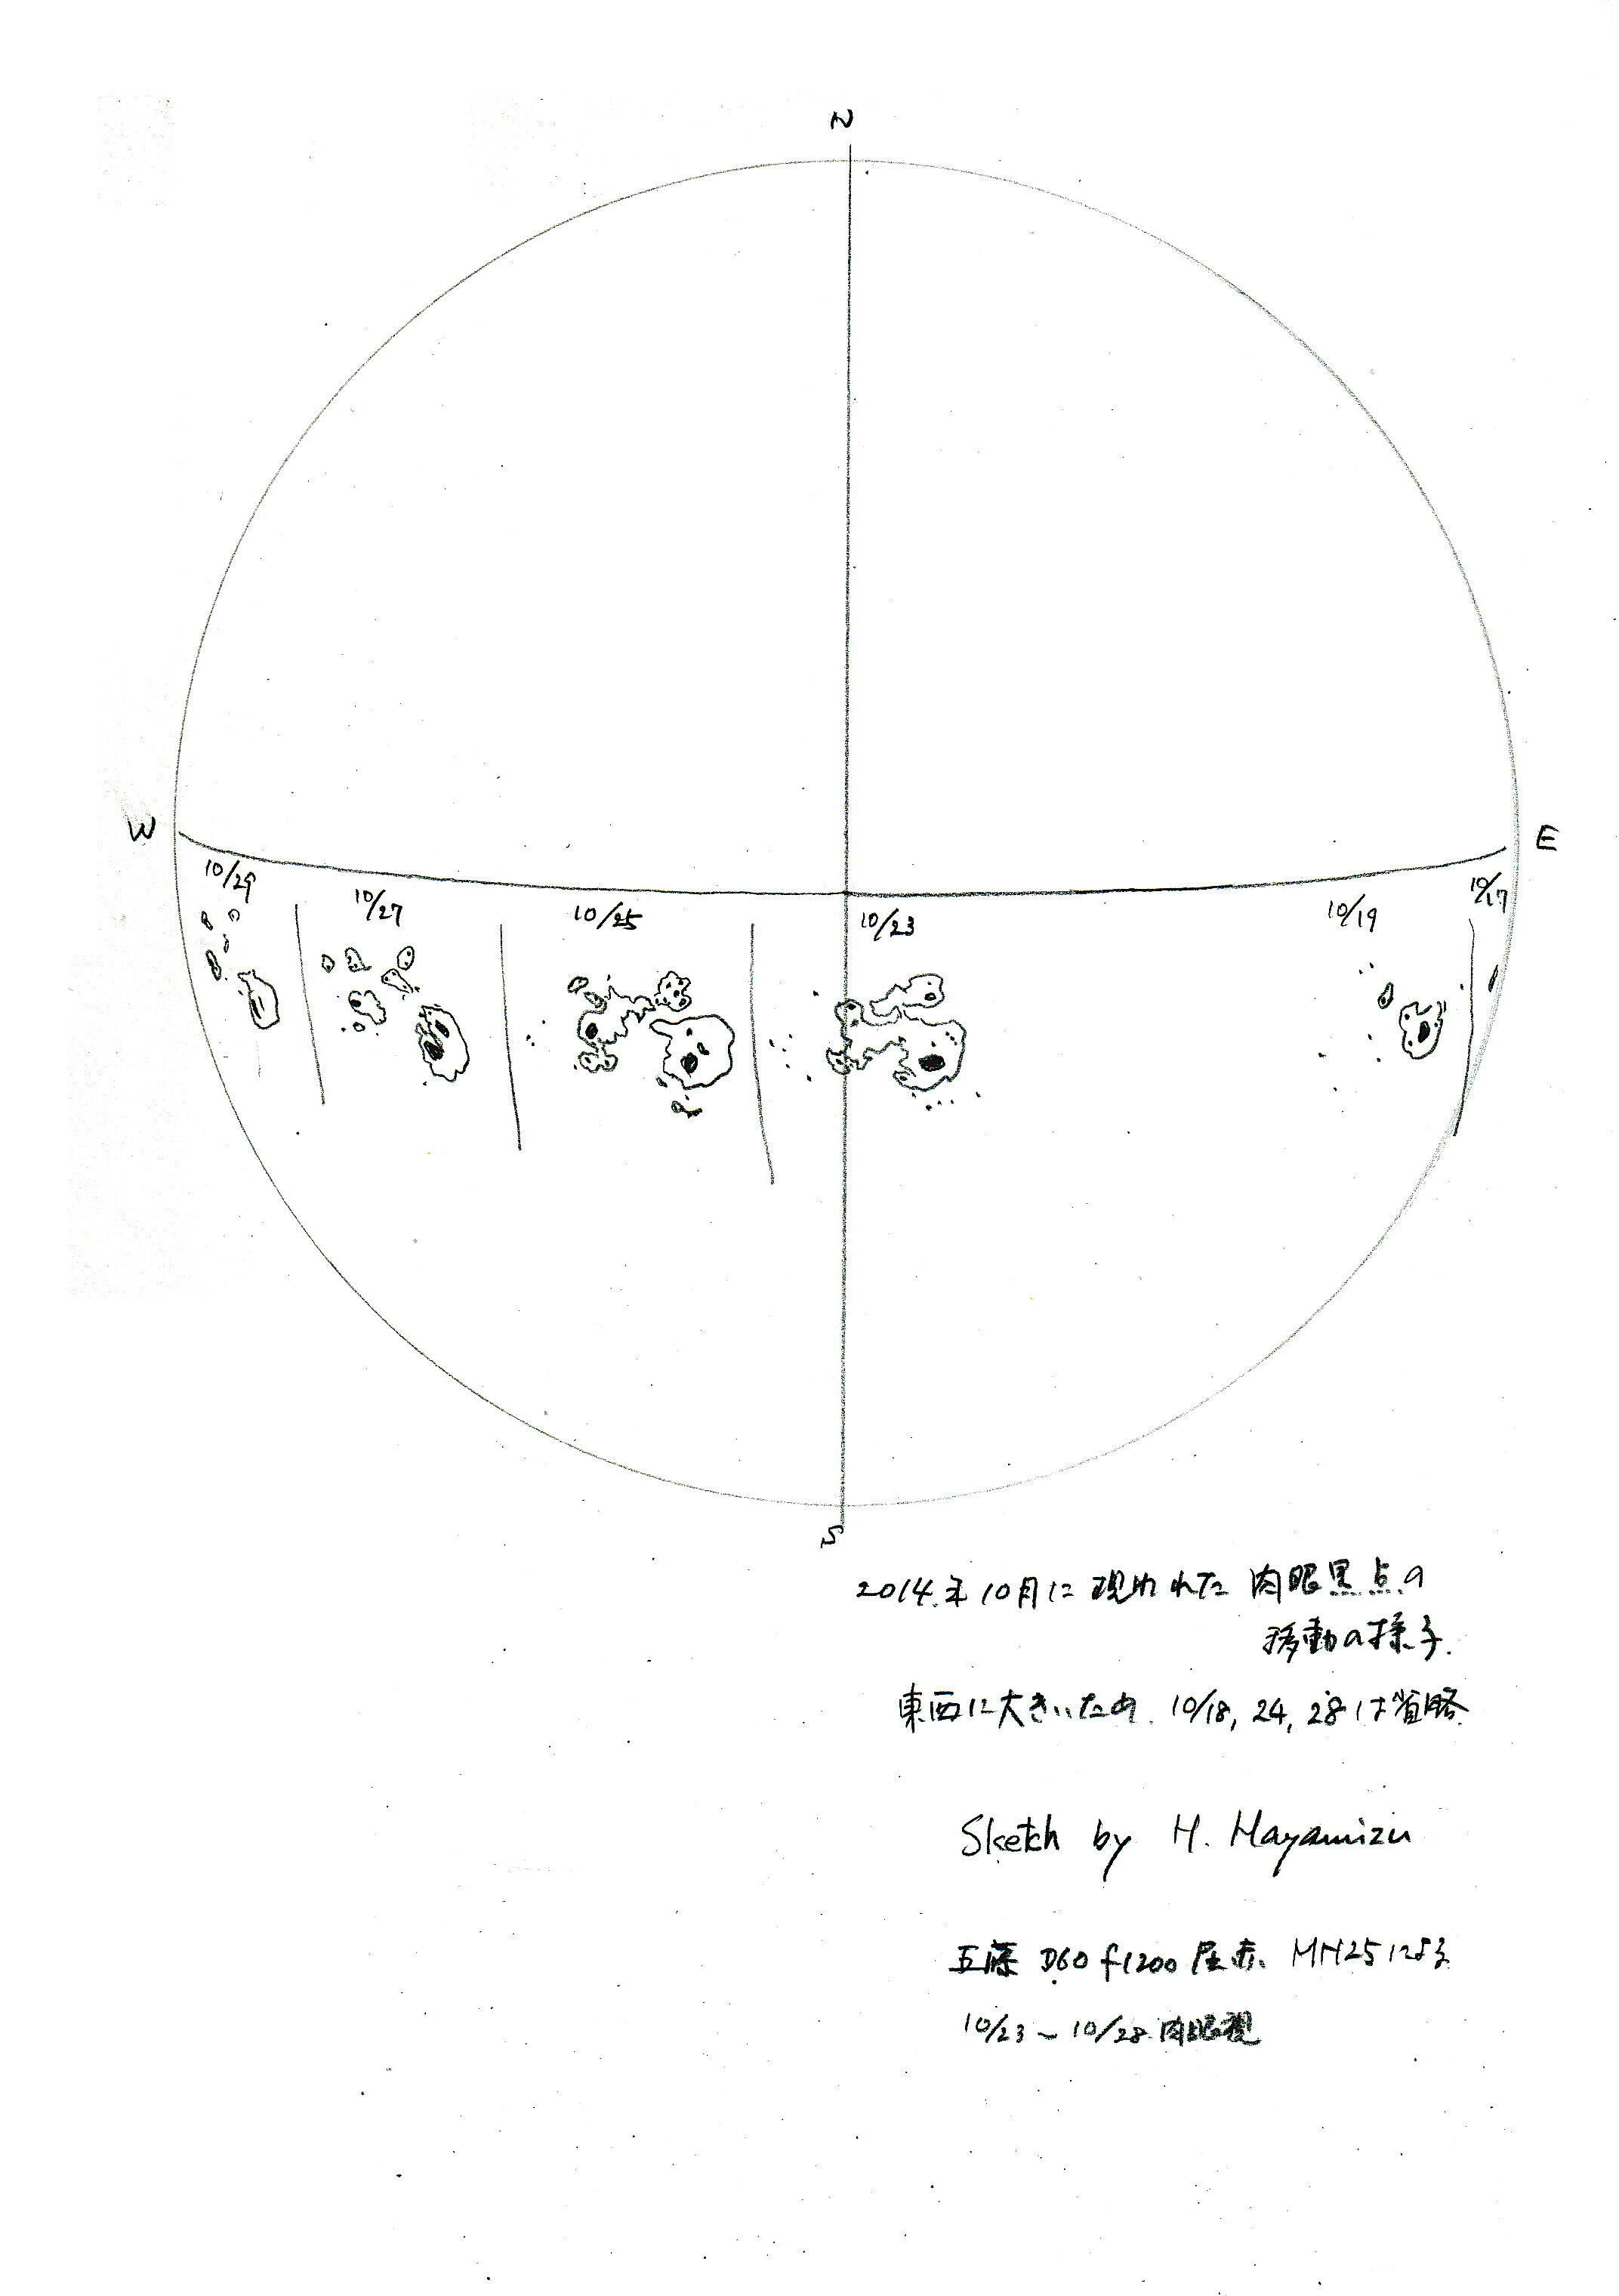 N
W
E
10/29
10/27
10/25
10/23
10/19
10/17
S
2014年10月に現われた肉眼黒点の
移動の様子.
東西に大きいため. 10/18, 24, 28は省略
Sketch by H. Hayamizu
五藤 D60 f1200 屈赤. MH25による
10/23~10/28 肉眼視